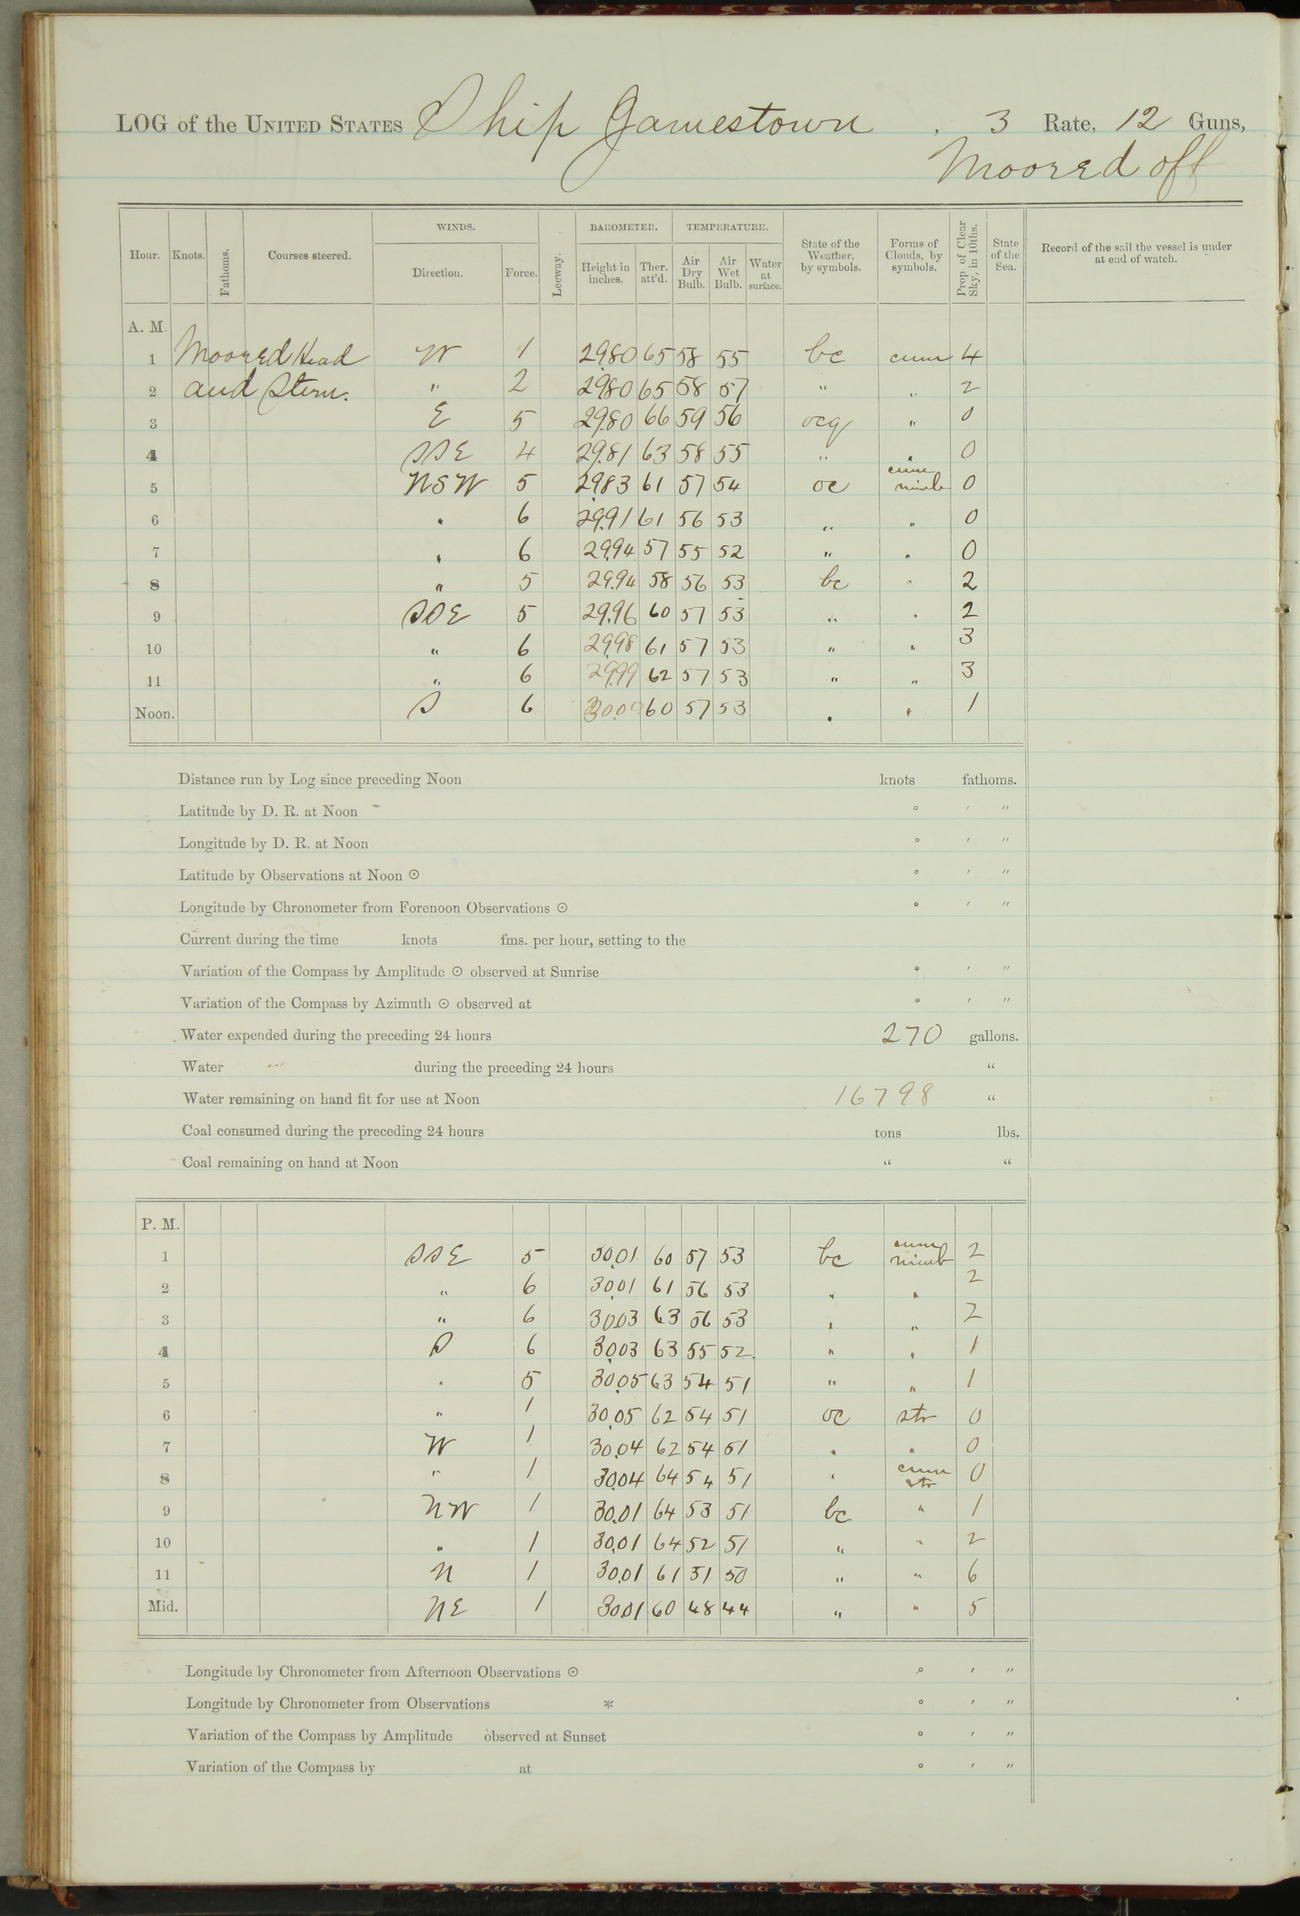 LOG of the UNITED STATES Ship Jamestown , 3 Rate, 12 Guns,
Moored off
Hour. Knots. Fathoms. Courses steered. WINDS. Direction. Force. Leeway. BAROMETER. Height in inches. Ther. att'd. TEMPERATURE. Air Dry Bulb. Air Wet Bulb. Water at surface. State of the Weather, by symbols. Forms of Clouds, by symbols. Prop. of Clear Sky, in 10ths. State of the Sea. Record of the sail the vessel is under at end of watch.
A. M.
1 Moored Head W 1 29.80 65 58 55 bc cum 4
2 and Stern. " 2 29.80 65 58 57 " " 2
3 E 5 29.80 66 59 56 ocq " 0
4 SSE 4 29.81 63 58 55 " " 0
5 WSW 5 29.83 61 57 54 oc cum nimb 0
6 " 6 29.91 61 56 53 " " 0
7 " 6 29.94 57 55 52 " " 0
8 " 5 29.94 58 56 53 bc " 2
9 SSE 5 29.96 60 57 53 " " 2
10 " 6 29.98 61 57 53 " " 3
11 " 6 29.99 62 57 53 " " 3
Noon. S 6 30.00 60 57 53 " " 1
Distance run by Log since preceding Noon knots fathoms.
Latitude by D. R. at Noon ° ′ ″
Longitude by D. R. at Noon ° ′ ″
Latitude by Observations at Noon ☉ ° ′ ″
Longitude by Chronometer from Forenoon Observations ☉ ° ′ ″
Current during the time knots fms. per hour, setting to the
Variation of the Compass by Amplitude ☉ observed at Sunrise ° ′ ″
Variation of the Compass by Azimuth ☉ observed at ° ′ ″
Water expended during the preceding 24 hours 270 gallons.
Water during the preceding 24 hours "
Water remaining on hand fit for use at Noon 16798 "
Coal consumed during the preceding 24 hours tons lbs.
Coal remaining on hand at Noon " "
P. M.
1 SSE 5 30.01 60 57 53 bc cum nimb 2
2 " 6 30.01 61 56 53 " " 2
3 " 6 30.03 63 56 53 " " 2
4 S 6 30.03 63 55 52 " " 1
5 " 5 30.05 63 54 51 " " 1
6 " 1 30.05 62 54 51 oc str 0
7 W 1 30.04 62 54 51 " " 0
8 " 1 30.04 64 54 51 " cum str 0
9 NW 1 30.01 64 53 51 bc " 1
10 " 1 30.01 64 52 51 " " 2
11 N 1 30.01 61 51 50 " " 6
Mid. NE 1 30.01 60 48 44 " " 5
Longitude by Chronometer from Afternoon Observations ☉ ° ′ ″
Longitude by Chronometer from Observations * ° ′ ″
Variation of the Compass by Amplitude observed at Sunset ° ′ ″
Variation of the Compass by at ° ′ ″